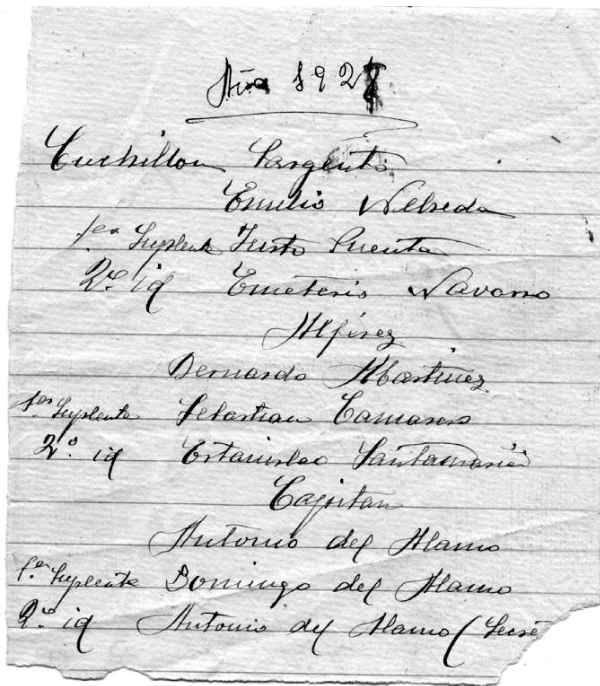 Año 1927
Cuchillon Sargento
Emilio Nebreda
1er Suplente Justo Puente
2º id Emeterio Navarro
Alferez
Bernardo Martinez
1er Suplente Sebastian Camarero
2º id Estanislao Santamaria
Capitan
Antonio del Alamo
1er Suplente Domingo del Alamo
2º id Antonio del Alamo (Secre